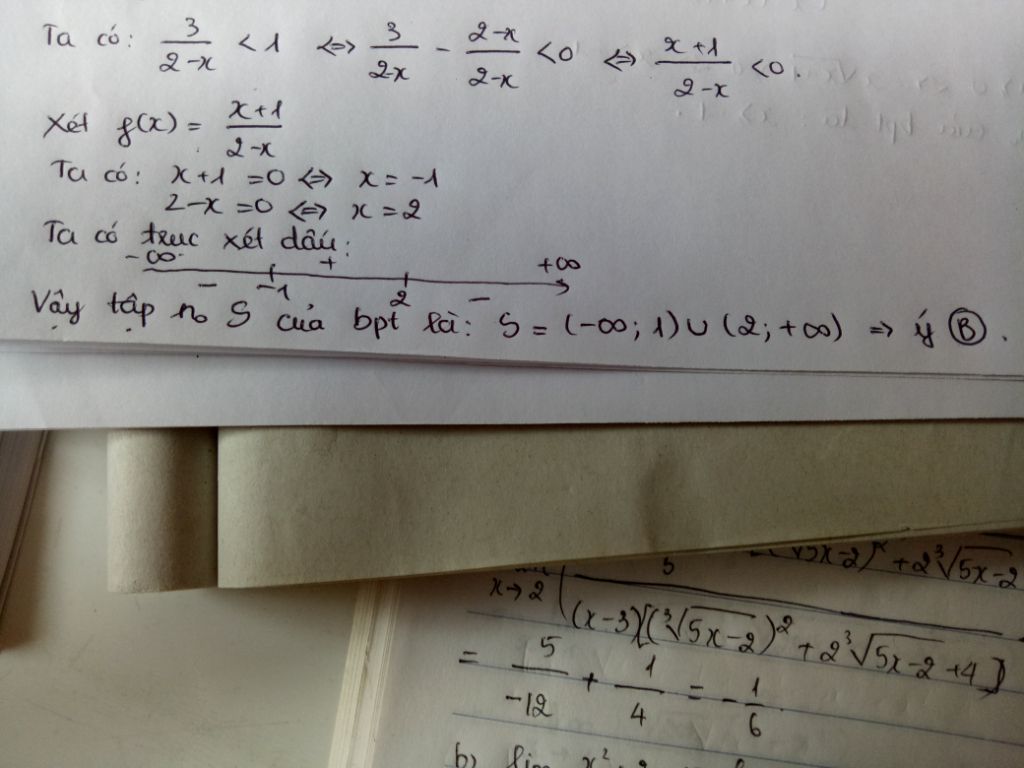 Ta có: 3/(2-x) < 1 <=> 3/(2-x) - (2-x)/(2-x) < 0 <=> (x+1)/(2-x) < 0.
Xét f(x) = (x+1)/(2-x)
Ta có: x+1 = 0 <=> x = -1
2-x = 0 <=> x = 2
Ta có trục xét dấu:
-∞ + +∞
- -1 2 -
Vậy tập no S của bpt là: S = (-∞; 1) ∪ (2; +∞) => ý Ⓑ.
5 + 2∛(5x-2)
x→2 (x-3)[(∛(5x-2))² + 2∛(5x-2) + 4]
= 5/(-12) + 1/4 = -1/6
b) lim x²